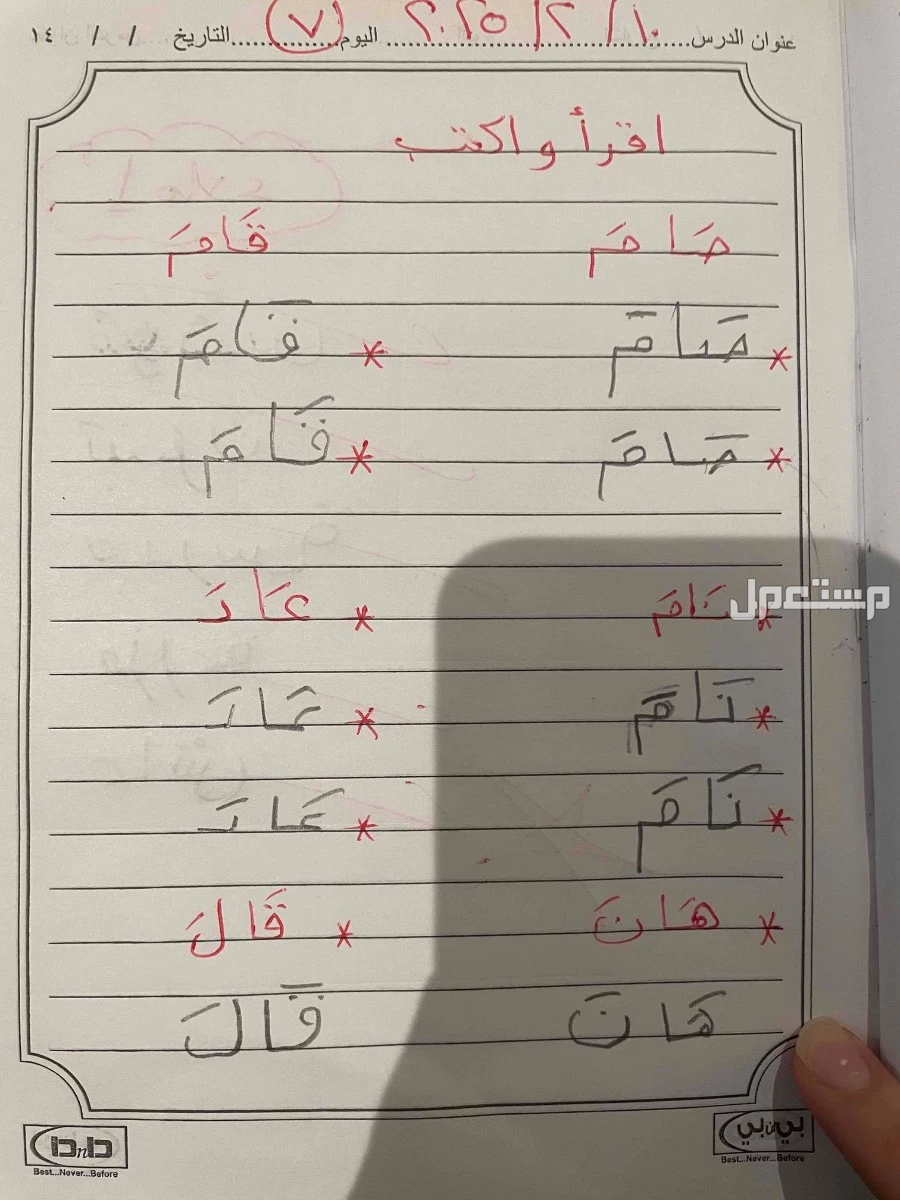 عنوان الدرس ١٠/٢/٢٠٢٥ اليوم (٧) التاريخ / / ١٤
اقرأ واكتب
صَامَ قَامَ
* صَامَ * قَامَ
* صَامَ * قَامَ
* نَامَ * عَادَ
مستعمل
* نَامَ * عَادَ
* نَامَ * عَادَ
* هَانَ * قَالَ
هَانَ قَالَ
بي ان بي دا n دا
Best...Never...Before Best...Never...Before